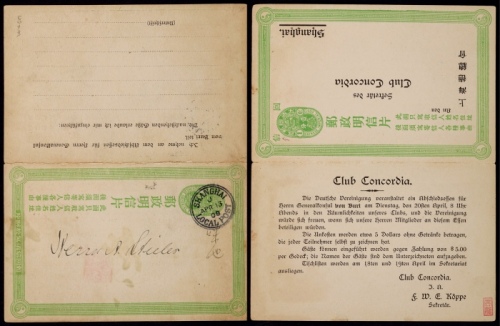 Ich nehme an dem Abschiedsessen für Herrn Generalkonsul
von Buri teil.
Die nachstehenden Gäste erlaube ich mir einzuführen
(Unterschrift)
郵政明信片
SHANGHAI
LOCAL POST
Herrn A. Stieler
郵政明信片
An den
Sekretär des
Club Concordia
Shanghai.
上海德總會
Club Concordia.
Die Deutsche Vereinigung veranstaltet ein Abschiedsessen für
Herrn Generalkonsul von Buri am Dienstag, den 20sten April, 8 Uhr
Abends in den Räumlichkeiten unseres Clubs, und die Vereinigung
würde sich freuen, wenn sich unsere Herren Mitglieder an diesem Essen
beteiligen würden.
Die Unkosten werden etwa 5 Dollars ohne Getränke betragen,
die jeder Teilnehmer selbst zu zeichnen hat.
Gäste können eingeführt werden gegen Zahlung von $5.00
per Gedeck; die Namen der Gäste sind dem Unterzeichneten aufzugeben.
Tischlisten werden am 18ten und 19ten April im Sekretariat
ausliegen.
Club Concordia.
I. A.
F. W. E. Käppe
Sekretär.